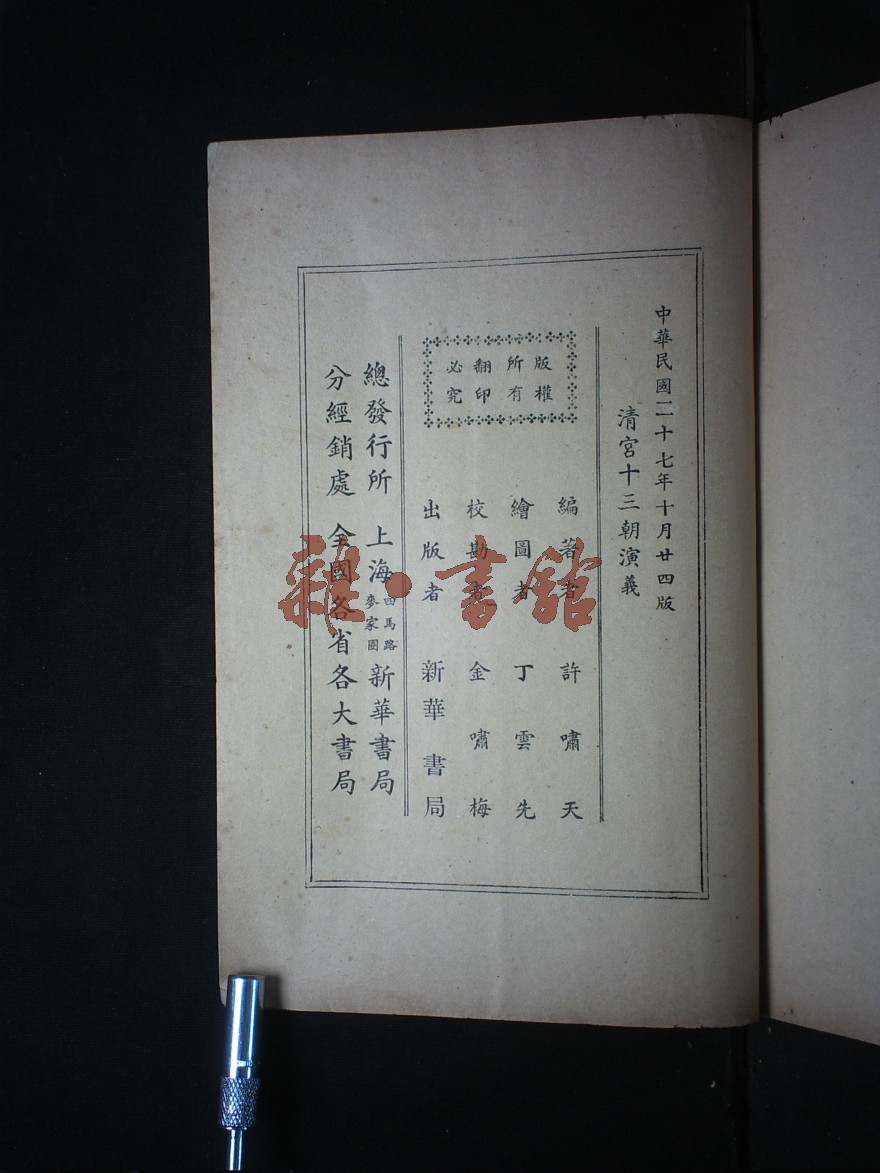 中華民國二十七年十月廿四版
清宮十三朝演義
版權
所有
翻印
必究
編著者 許嘯天
繪圖者 丁雲先
校勘者 金嘯梅
出版者 新華書局
總發行所 上海四馬路麥家圈新華書局
分經銷處 全國各省各大書局
雜·書館